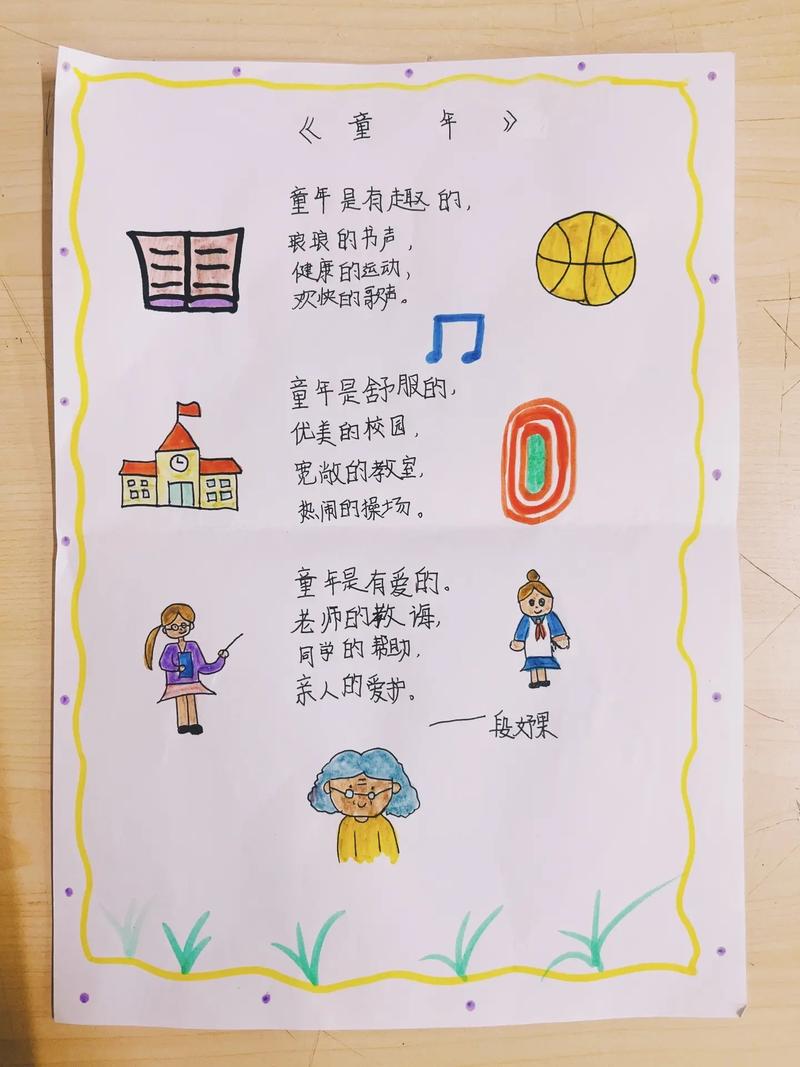 《童年》
童年是有趣的，
琅琅的书声，
健康的运动，
欢快的歌声。
童年是舒服的，
优美的校园，
宽敞的教室，
热闹的操场。
童年是有爱的。
老师的教诲，
同学的帮助，
亲人的爱护。
——段妤果